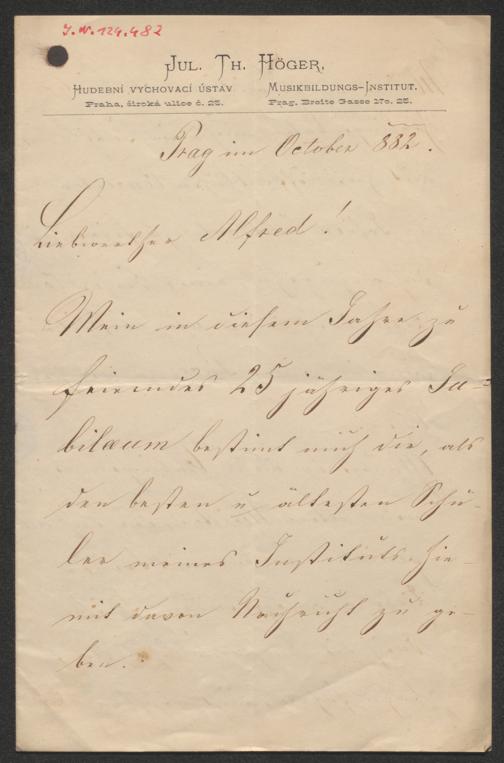 J. N. 124.482
JUL. TH. HÖGER,
HUDEBNÍ VYCHOVACÍ ÚSTAV MUSIKBILDUNGS-INSTITUT.
Praha, široká ulice č. 25. Prag, Breite Gasse No. 25.
Prag im October 882.
Liebwerther Alfred!
Mein in diesem Jahre zu
feierndes 25 jähriges Ju=
bilæum bestimt mich die, als
den besten u ältesten Schü-
ler meines Instituts hie-
mit davon Nachricht zu ge-
ben.